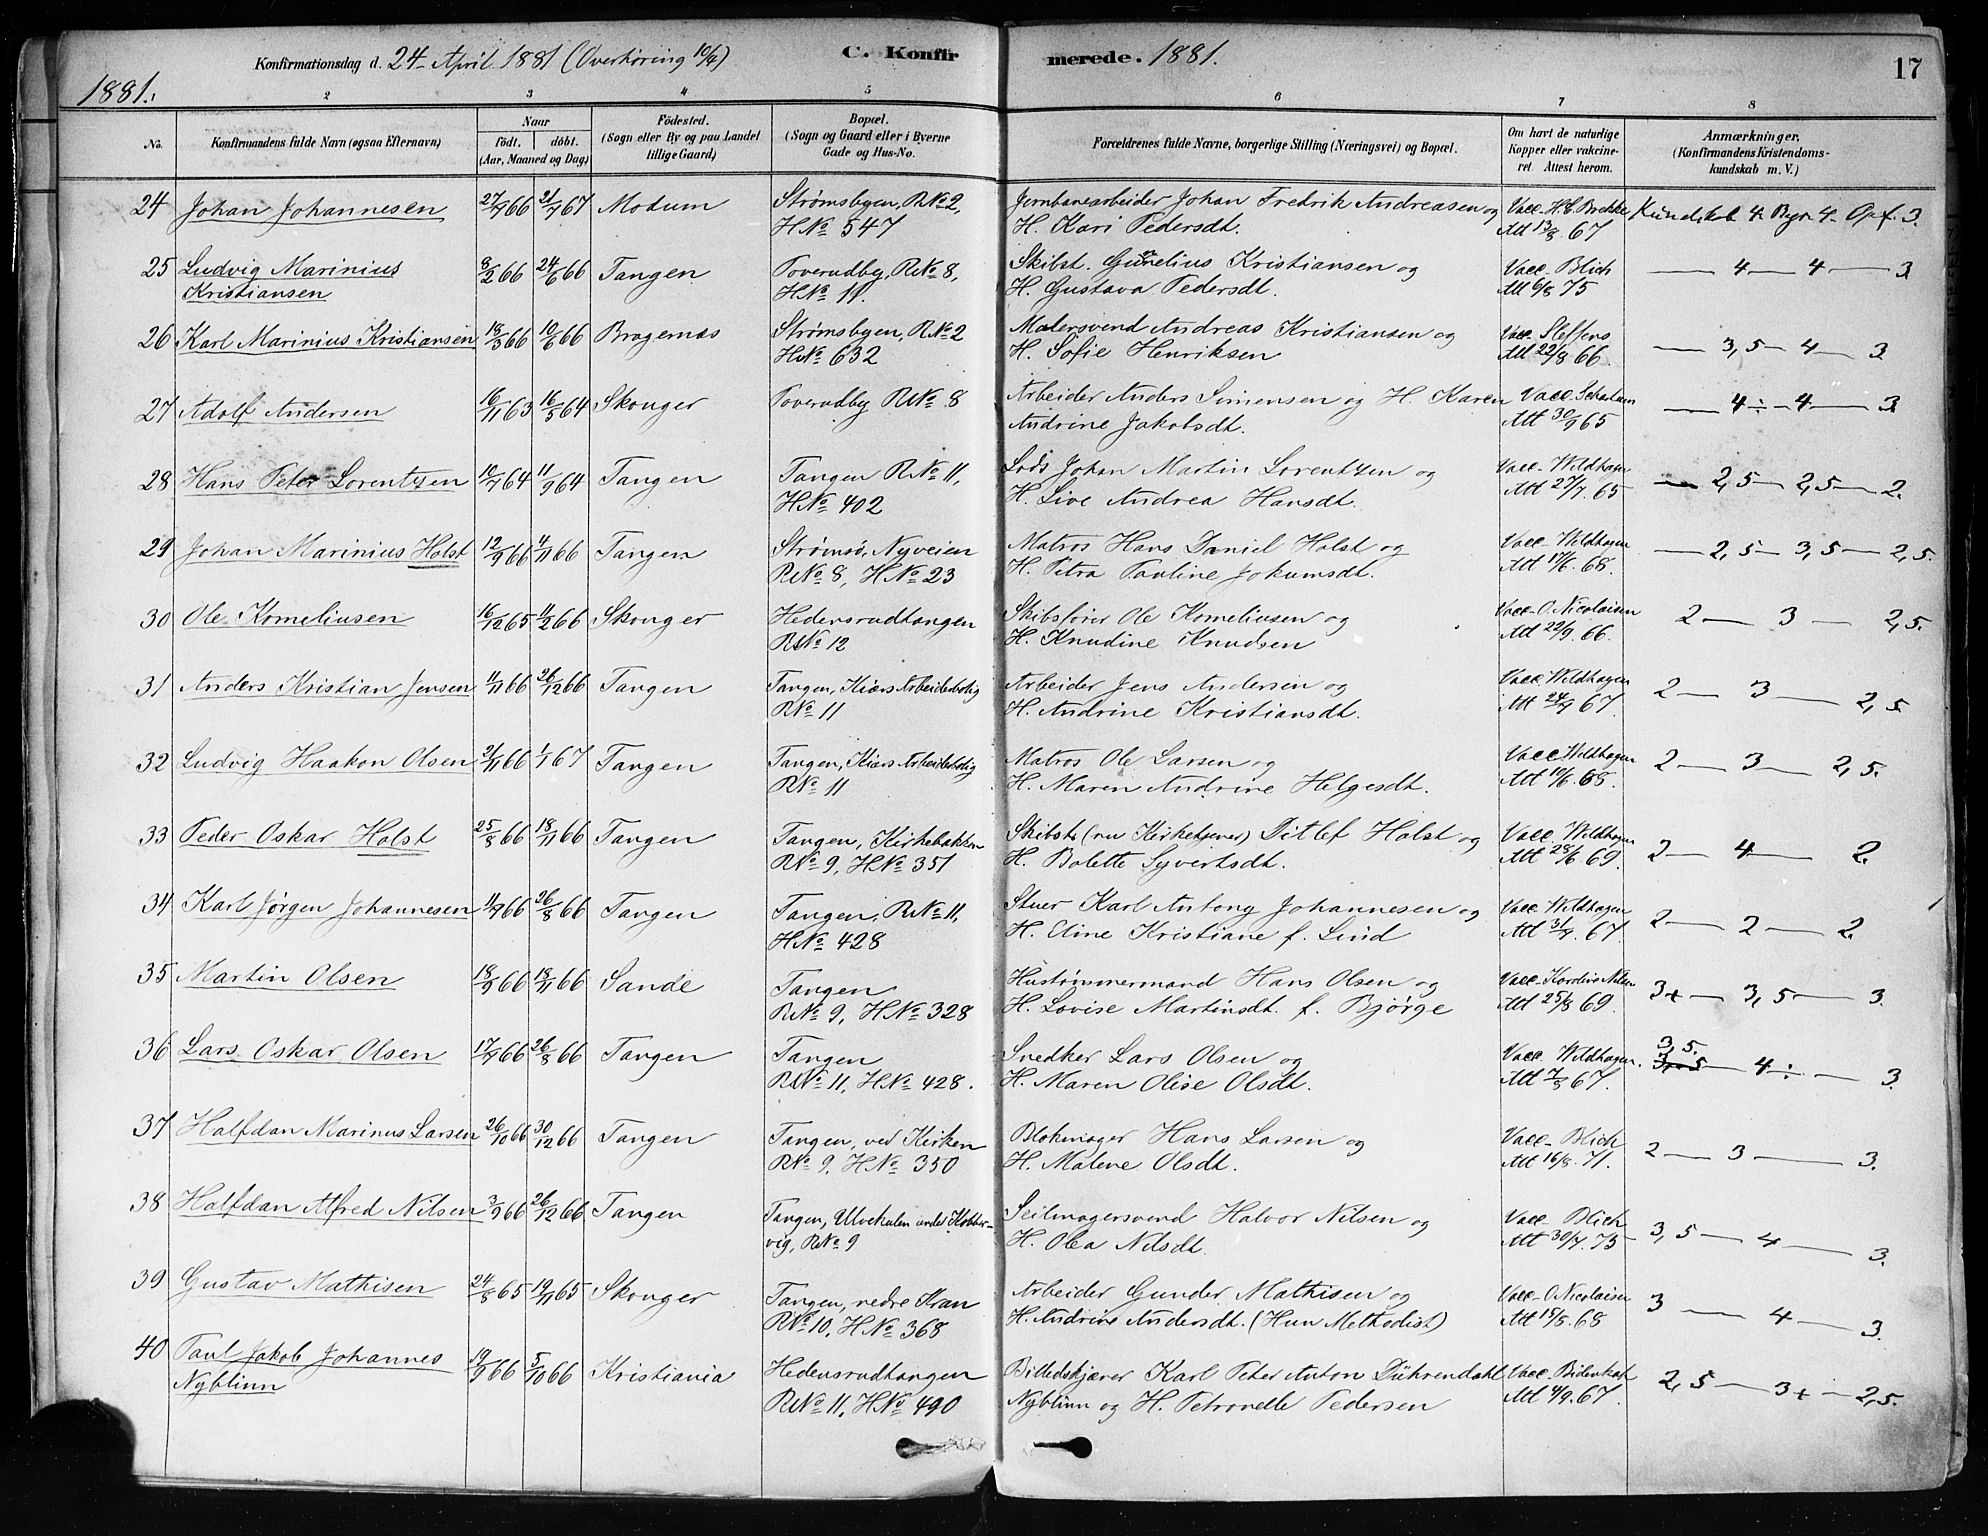 Konfirmationsdag d. 24 April 1881 (Overhøring 10/4) C. Konfirmerede. 1881. 17
1881.
2 3 4 5 6 7 8
No. Konfirmandens fulde Navn (ogsaa Efternavn) Naar født. døbt. (Aar, Maaned og Dag) Fødested. (Sogn eller By og paa Landet tillige Gaard) Bopæl. (Sogn og Gaard eller i Byerne Gade og Hus-No. Forældrenes fulde Navne, borgerlige Stilling (Næringsvei) og Bopæl. Om havt de naturlige Kopper eller vakcineret. Attest herom. Anmærkninger, (Konfirmandens Kristendomskundskab m. V.)
24 Johan Johannesen 27/9 66 21/7 67 Modum Strømsbyen, R.No 2, Jernbanearbeider Johan Fredrik Andreasen og Vacc. H. C. Brekke Kundskab 4. Bgr. 4. Opf. 3.
H.No 547 H. Kari Pedersdt. Att 13/8 67
25 Ludvig Marinius 8/2 66 24/6 66 Tangen Toverudby, R.No 8, Skibst. Gunelius Kristiansen og Vacc. Blich — 4 — 4 — 3.
Kristiansen H.No 11. H. Gustava Pedersdt. Att 6/8 75
26 Karl Marinius Kristiansen 18/3 66 10/6 66 Bragernæs Strømsbyen, R.No 2 Malersvend Andreas Kristiansen og Vacc. Steffens — 3,5 — 4 — 3
H.No 632 H. Sofie Henriksen Att 22/8 66
27 Adolf Andersen 16/11 63 16/5 64 Skouger Toverudby R.No 8 Arbeider Anders Simensen og H. Karen Vacc. — 4÷ — 4 — 3
Andrine Jakobsdt. Att 30/9 65
28 Hans Peter Lorentzen 10/7 64 11/9 64 Tangen Tangen R.No 11, Lods Johan Martin Lorentzen og Vacc. Wildhagen — 2,5 — 2,5 — 2.
H.No 402 H. Live Andrea Hansdt. Att 27/7. 65
29 Johan Marinius Holst 12/9 66 4/11 66 Tangen Strømsø, Nyveien Matros Hans Daniel Holst og Vacc. Wildhagen — 2,5 — 3,5 — 2,5.
R.No 8, H.No 23 H. Petra Pauline Jokumsdt. Att 17/6. 68.
30 Ole Korneliusen 16/12 65 11/2 66 Skouger Hedensrudtangen Skibsfører Ole Korneliusen og Vacc. O. Nicolaisen 2 — 3 — 2,5.
R.No 12 H. Knudine Knudsen Att 22/9. 66.
31 Anders Kristian Jensen 11/11 66 26/12 66 Tangen Tangen, Kiærs Arbeiderbolig Arbeider Jens Andersen og Vacc. Wildhagen 2 — 3 — 2,5.
R.No 11 H. Andrine Kristiansdt. Att 24/9 67.
32 Ludvig Haakon Olsen 21/11 66 1/1 67 Tangen Tangen, Kiærs Arbeiderbolig Matros Ole Larsen og Vacc Wildhagen 2 — 3 — 2,5.
R.No 11 H. Maren Andrine Helgesdt. Att 10/6. 68.
33 Peder Oskar Holst 25/8 66 18/11 66 Tangen Tangen, Kirkebakken Skibst. (nu Kirketjener) Ditlef Holst og Vacc. Wildhagen 2 — 4 — 2.
R.No 9, H.No 351 H. Bolette Syvertsdt. Att 28/6. 69.
34 Karl Jørgen Johannesen 11/7 66 26/8 66 Tangen Tangen, R.No 11, Stuer Karl Antong Johannesen og Vacc. Wildhagen 2 — 2 — 2.
H.No 428 H. Eline Kristiane f. Lind Att 31/7. 67.
35 Martin Olsen 18/9 66 18/11 66 Sande Tangen Hustømmermand Hans Olsen og Vacc. 3+ — 3,5 — 3.
R.No 9, H.No 328 H. Lovise Martinsdt. f. Bjørge Att 25/8 69.
36 Lars Oskar Olsen 17/7 66 26/8 66 Tangen Tangen Snedker Lars Olsen og Vacc. Wildhagen. 3,5. — 4÷ — 3.
R.No 11, H.No 428. H. Maren Olise Olsdt. Att 7/8 67.
37 Halfdan Marinus Larsen 26/10 66 30/12 66 Tangen Tangen, ved Kirken Blokmager Hans Larsen og Vacc. Blich 2 — 3 — 3.
R.No 9, H.No 350 H. Malene Olsdt. Att 16/8. 71.
38 Halfdan Alfred Nilsen 3/9 66 26/12 66 Tangen Tangen, Ulvekulen under Kobber- Seilmagersvend Halvor Nilsen og Vacc. Blich 3,5 — 4 — 3.
vig, R.No 9 H. Olea Nilsdt. Att 30/7. 75
39 Gustav Mathisen 24/8 65 19/11 65 Skouger Tangen, nedre Kran Arbeider Gunder Mathisen og Vacc. O Nicolaisen 3 — 4 — 3.
R.No 10, H.No 368 H. Andrine Andersdt. (Hun Methodist) Att 15/8. 68
40 Paul Jakob Johannes 19/9 66 5/10 66 Kristiania Hedensrudtangen Billedskjærer Karl Peter Anton Dührendahl Vacc. Bidenkap 2,5 — 3+ — 2,5.
Nyblinn R.No 11, H.No 490 Nyblinn og H. Petronelle Pedersen Att 4/9. 67.